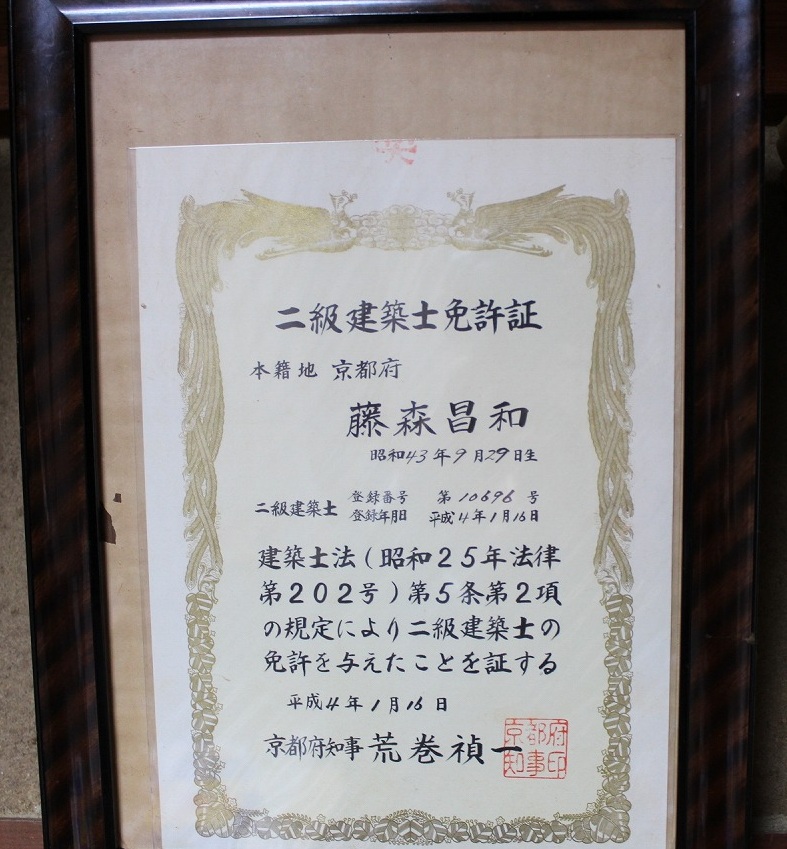 二級建築士免許証
本籍地 京都府
藤森昌和
昭和43年9月29日生
二級建築士 登録番号 第10696号
登録年月日 平成4年1月16日
建築士法(昭和25年法律
第202号)第5条第2項
の規定により二級建築士の
免許を与えたことを証する
平成4年1月16日
京都府知事 荒巻禎一
京都府
知事印